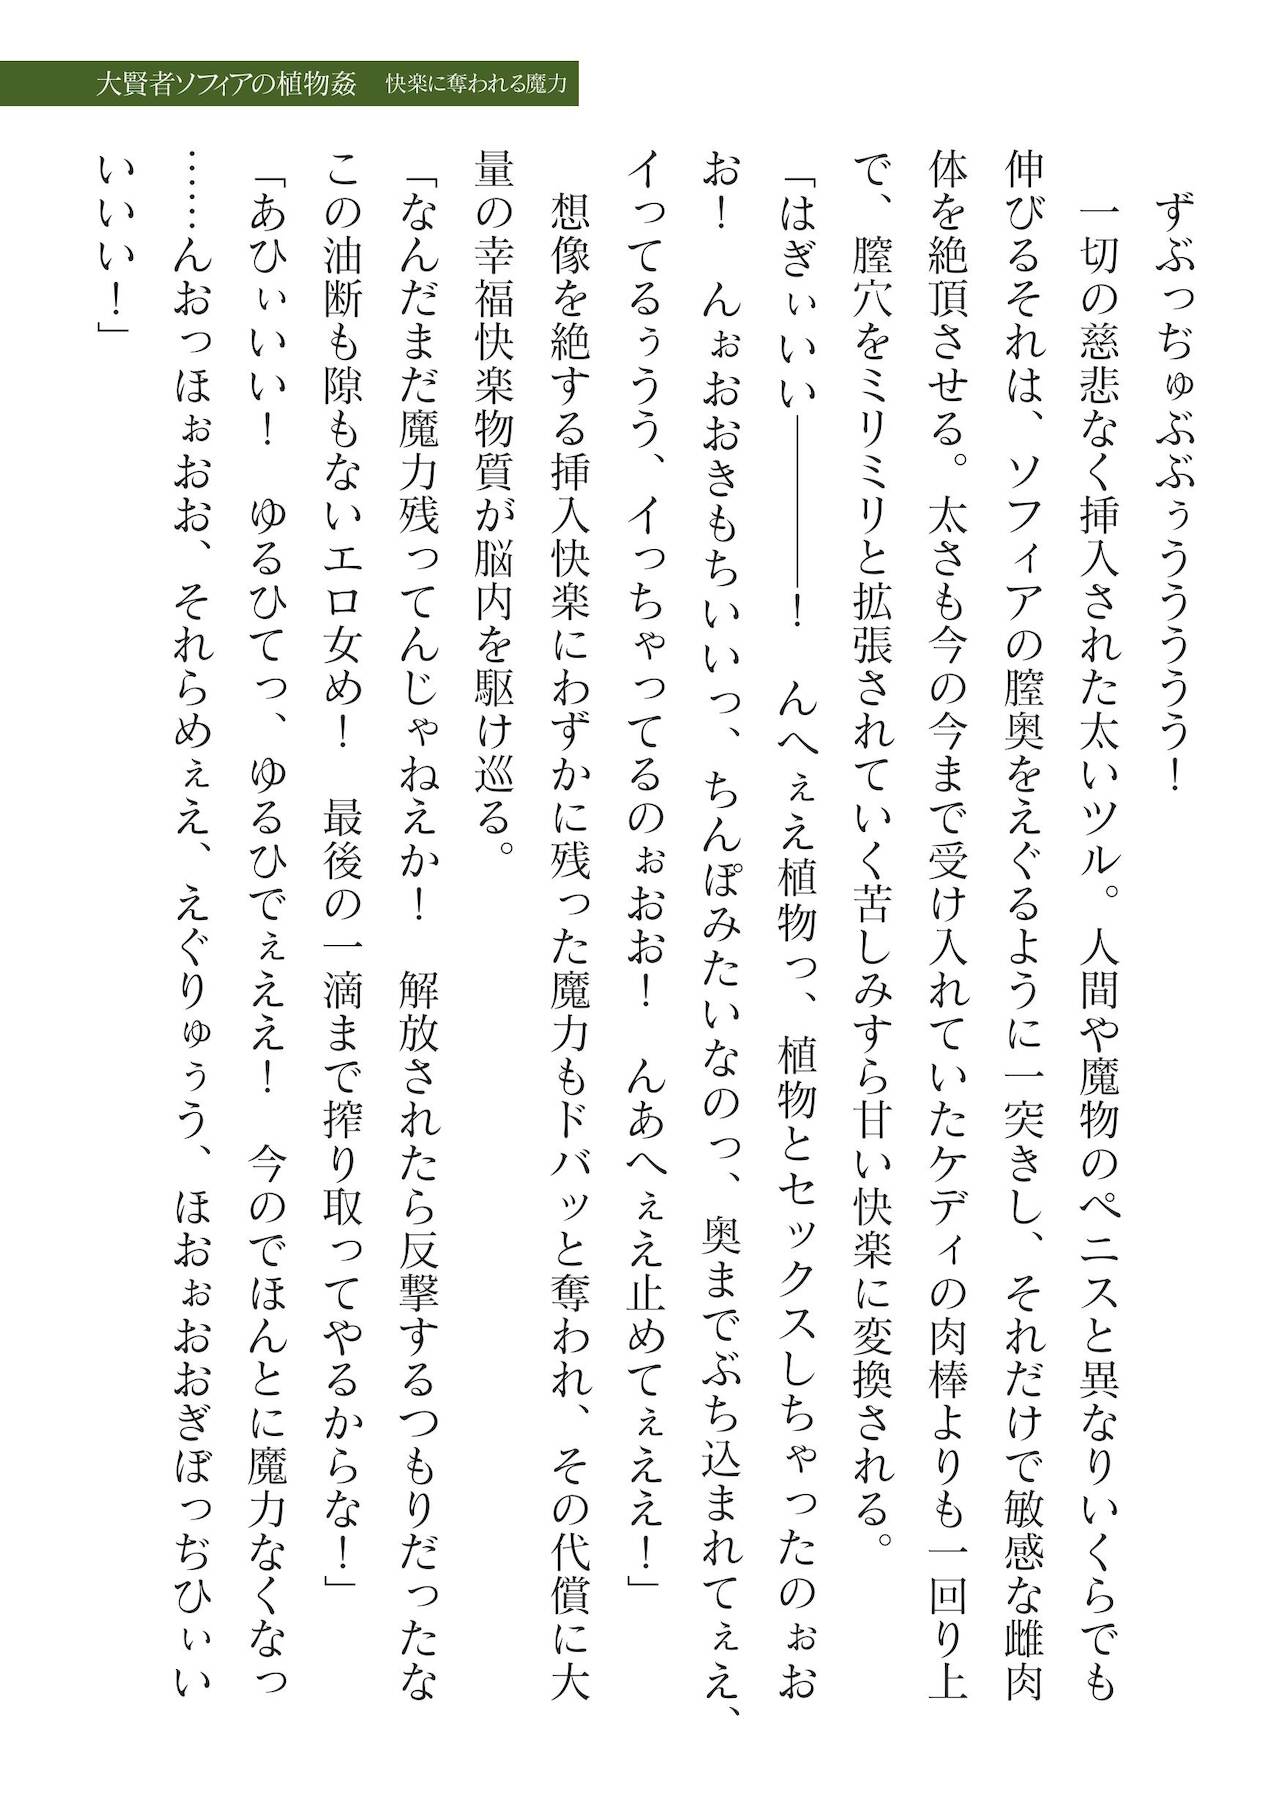 大賢者ソフィアの植物姦　快楽に奪われる魔力
ずぶっぢゅぶぶぅうううう！
一切の慈悲なく挿入された太いツル。人間や魔物のペニスと異なりいくらでも
伸びるそれは、ソフィアの膣奥をえぐるように一突きし、それだけで敏感な雌肉
体を絶頂させる。太さも今の今まで受け入れていたケディの肉棒よりも一回り上
で、膣穴をミリミリと拡張されていく苦しみすら甘い快楽に変換される。
「はぎぃいい――――！　んへぇえ植物っ、植物とセックスしちゃったのぉお
お！　んぉおおきもちいいっ、ちんぽみたいなのっ、奥までぶち込まれてぇえ、
イってるぅうう、イっちゃってるのぉおお！　んあへぇえ止めてぇええ！」
想像を絶する挿入快楽にわずかに残った魔力もドバッと奪われ、その代償に大
量の幸福快楽物質が脳内を駆け巡る。
「なんだまだ魔力残ってんじゃねえか！　解放されたら反撃するつもりだったな
この油断も隙もないエロ女め！　最後の一滴まで搾り取ってやるからな！」
「あひぃいい！　ゆるひてっ、ゆるひでぇええ！　今のでほんとに魔力なくなっ
……んおっほぉおお、それらめぇえ、えぐりゅぅう、ほおぉおおぎぼっぢひぃい
いいい！」